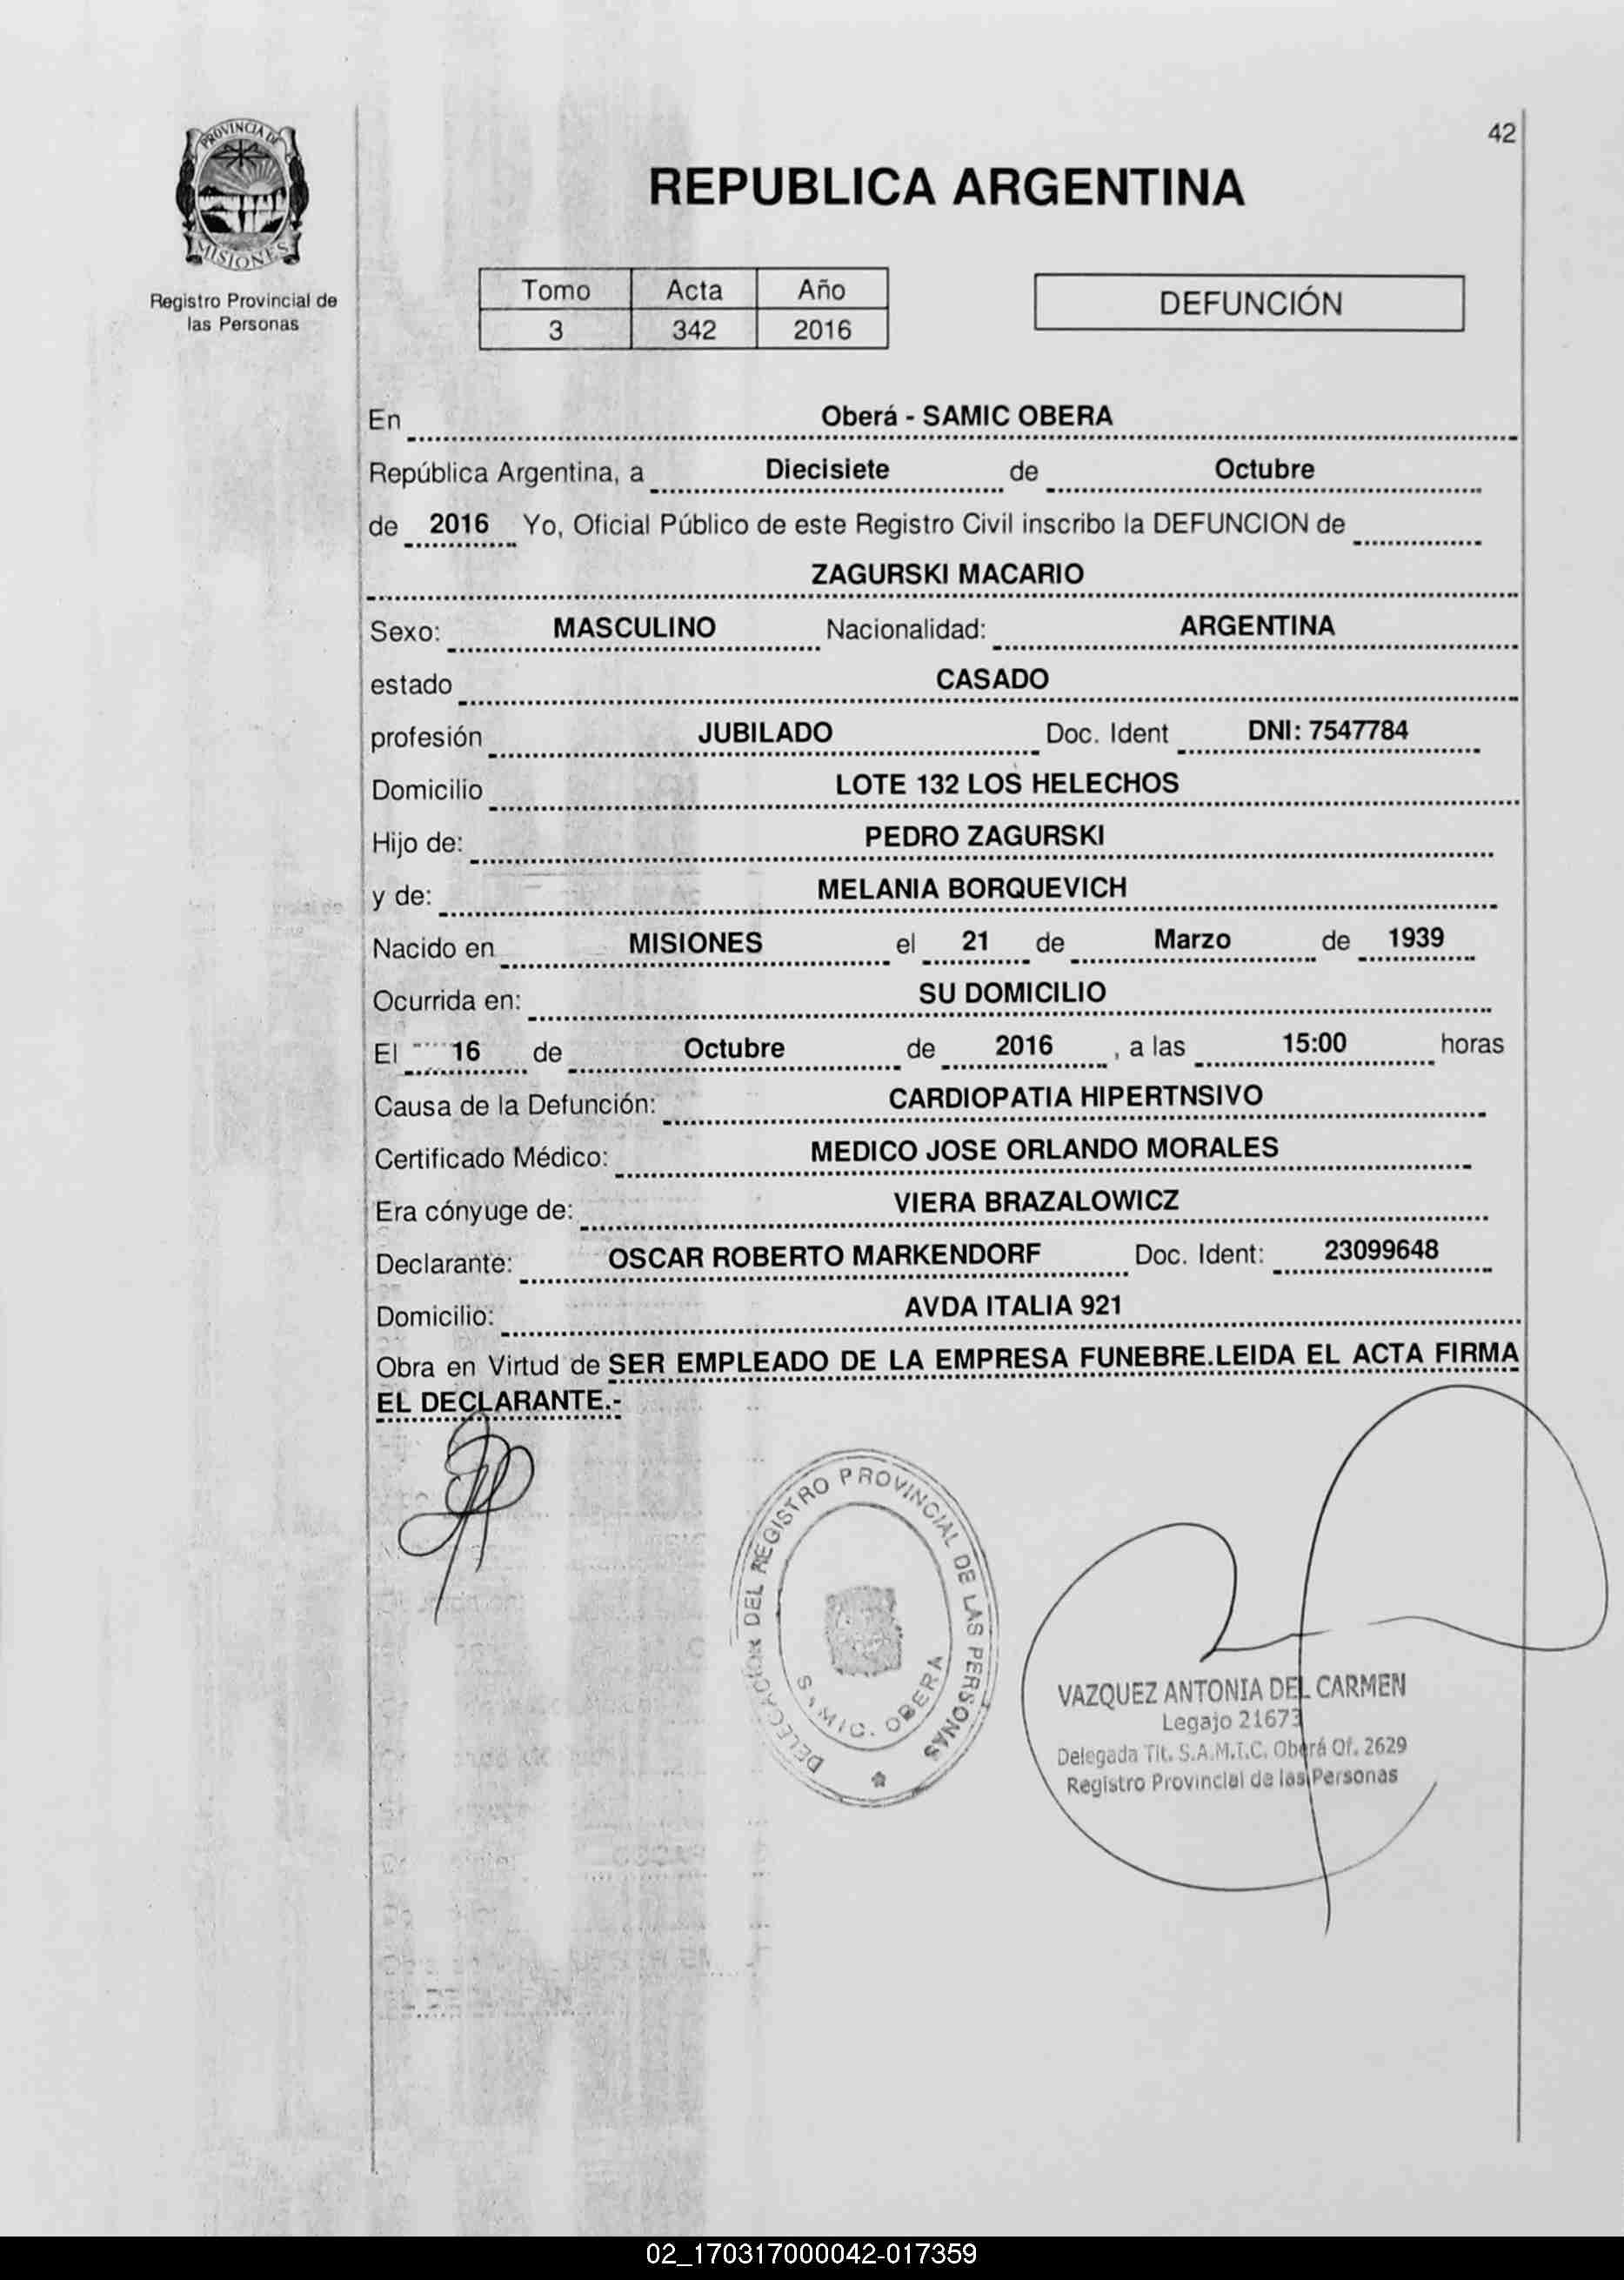 42
PROVINCIA DE
MISIONES
Registro Provincial de
las Personas
REPUBLICA ARGENTINA
Tomo Acta Año
3 342 2016
DEFUNCIÓN
En Oberá - SAMIC OBERA
República Argentina, a Diecisiete de Octubre
de 2016 Yo, Oficial Público de este Registro Civil inscribo la DEFUNCION de
ZAGURSKI MACARIO
Sexo: MASCULINO Nacionalidad: ARGENTINA
estado CASADO
profesión JUBILADO Doc. Ident DNI: 7547784
Domicilio LOTE 132 LOS HELECHOS
Hijo de: PEDRO ZAGURSKI
y de: MELANIA BORQUEVICH
Nacido en MISIONES el 21 de Marzo de 1939
Ocurrida en: SU DOMICILIO
El 16 de Octubre de 2016 , a las 15:00 horas
Causa de la Defunción: CARDIOPATIA HIPERTNSIVO
Certificado Médico: MEDICO JOSE ORLANDO MORALES
Era cónyuge de: VIERA BRAZALOWICZ
Declarante: OSCAR ROBERTO MARKENDORF Doc. Ident: 23099648
Domicilio: AVDA ITALIA 921
Obra en Virtud de SER EMPLEADO DE LA EMPRESA FUNEBRE.LEIDA EL ACTA FIRMA
EL DECLARANTE.-
DELEGACION DEL REGISTRO PROVINCIAL DE LAS PERSONAS
OBERA
VAZQUEZ ANTONIA DEL CARMEN
Legajo 21673
Delegada Tit. S.A.M.I.C. Oberá Of. 2629
Registro Provincial de las Personas
02_170317000042-017359